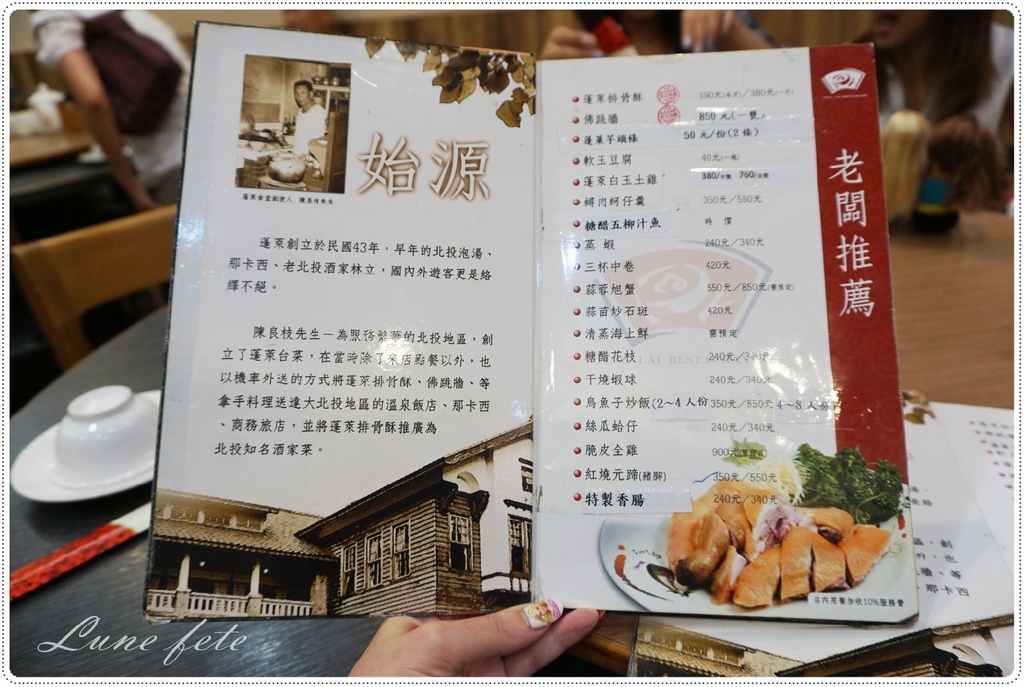 始源
蓬萊食堂創使人 陳良枝先生
蓬萊創立於民國43年，早年的北投泡湯、
那卡西、老北投酒家林立，國內外遊客更是絡
繹不絕。
陳良枝先生一為服務繁華的北投地區，創
立了蓬萊台菜，在當時除了來店點餐以外，也
以機車外送的方式將蓬萊排骨酥、佛跳牆、等
拿手料理送達大北投地區的溫泉飯店、那卡西
、商務旅店，並將蓬萊排骨酥推廣為
北投知名酒家菜。
老闆推薦
蓬萊排骨酥 190元(半斤)／380元(一斤)
佛跳牆 850元(一甕)
蓬萊芋頭條 50元/份(2條)
軟玉豆腐 40元(一塊)
蓬萊白玉土雞 380/半隻 760/全隻
蟳肉蚵仔羹 350元／550元
糖醋五柳汁魚 時價
蒸蝦 240元／340元
三杯中卷 420元
蒜蓉旭蟹 550元／850元(需預定)
蒜苗炒石斑 420元
清蒸海上鮮 需預定
糖醋花枝 240元／340元
干燒蝦球 240元／340元
烏魚子炒飯(2～4人份 350元／550元 4～8人份)
絲瓜蛤仔 240元／340元
脆皮全雞 900元(需預定)
紅燒元蹄(豬腳) 350元／550元
特製香腸 240元／340元
店內用餐加收10%服務費
Lune fete